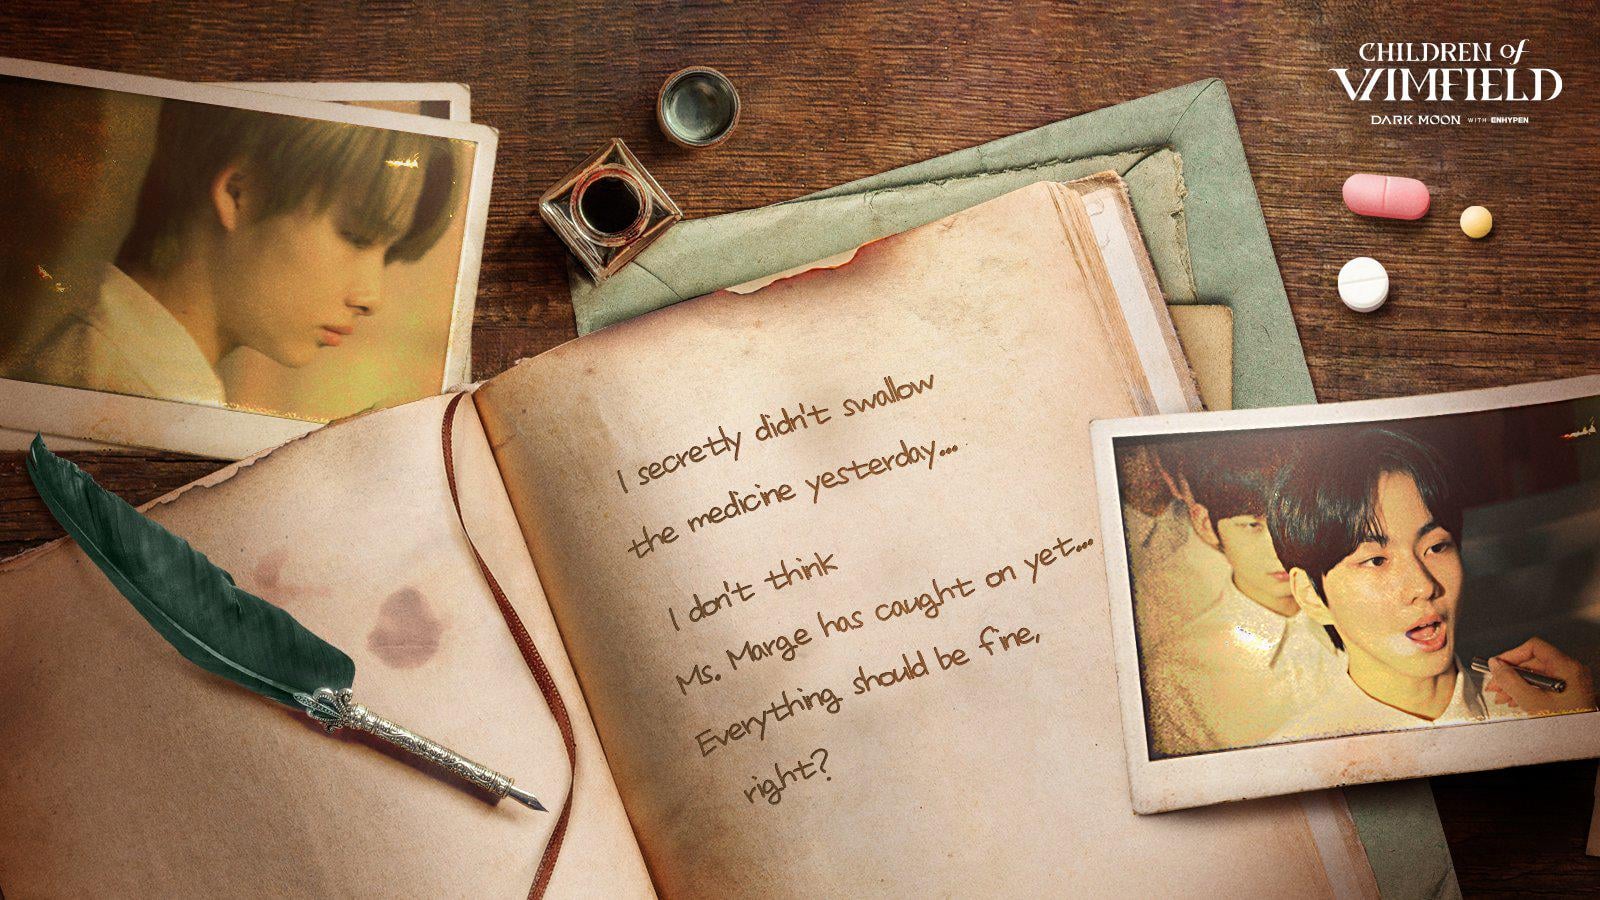 CHILDREN of
VAMFIELD
DARK MOON WITH ENHYPEN
I secretly didn't swallow
the medicine yesterday...
I don't think
Ms. Marge has caught on yet...
Everything should be fine,
right?